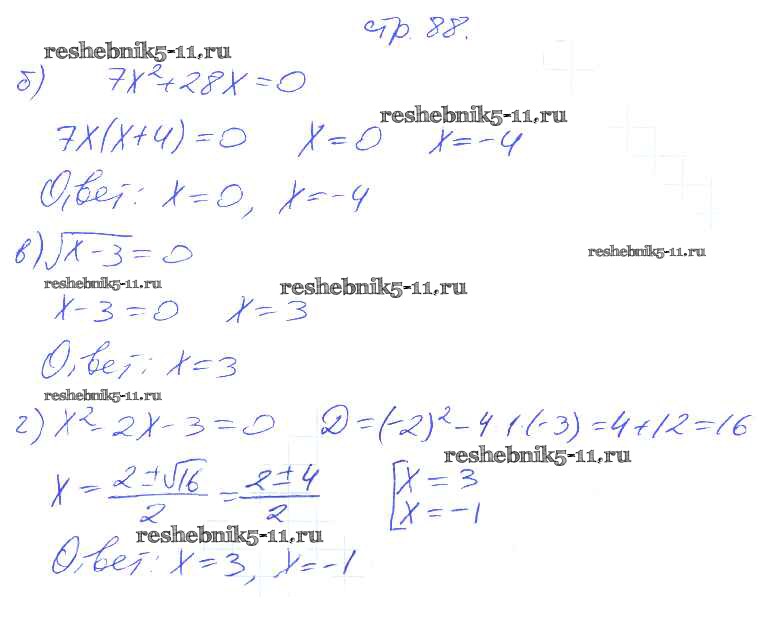 стр. 88.
reshebnik5-11.ru
б) 7x²+28x=0
reshebnik5-11.ru
7x(x+4)=0 x=0 x=-4
Ответ: x=0, x=-4
в) √x-3=0
reshebnik5-11.ru
reshebnik5-11.ru
reshebnik5-11.ru
x-3=0 x=3
Ответ: x=3
reshebnik5-11.ru
г) x²-2x-3=0 D=(-2)²-4·1·(-3)=4+12=16
reshebnik5-11.ru
x=(2±√16)/2=(2±4)/2 [x=3
x=-1
reshebnik5-11.ru
Ответ: x=3, x=-1